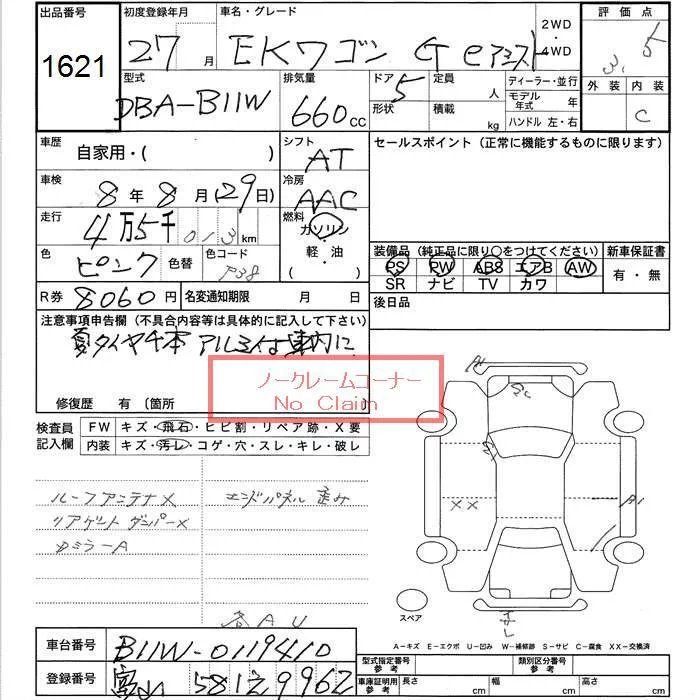 出品番号 初度登録年月 車名・グレード 2WD 評価点
1621 27月 EKワゴン G eアシスト ・ 3.5
4WD
型式 排気量 ドア 定員 ディーラー・並行 外装 内装
DBA-B11W 660cc 5 人 モデル年式 年 C
形状 積載 kg ハンドル 左・右
車歴 自家用・( ) シフト AT セールスポイント (正常に機能するものに限ります)
車検 8年8月(29日) 冷房 AAC
走行 4万5千013km 燃料 ガソリン・軽・油( )
色 ピンク 色替 色コード P38
装備品 (純正品に限り○をつけてください) 新車保証書
PS PW ABS エアB AW 有・無
SR ナビ TV カワ
R券 8060円 名変通知期限 月 日 後日品
注意事項申告欄 (不具合内容等は具体的に記入して下さい)
夏タイヤ4本 アルミ付 車内に
ノークレームコーナー
No Claim
修復歴 有 〔箇所
検査員記入欄 FW キズ・飛石・ヒビ割・リペア跡・X要
内装 キズ・汚レ・コゲ・穴・スレ・キレ・破レ
ルーフアンテナX エンドパネル 歪み
リアゲート ダンパーX
カミラーA
XX
A1
スペア
A-キズ E-エクボ U-凹み W-補修跡 S-サビ C-腐食 XX-交換済
車台番号 B11W-0119410
登録番号 富山 581 9962
型式指定番号 参考 類別区分番号 参考
車庫証明用 参考 長さ cm 幅 cm 高さ cm